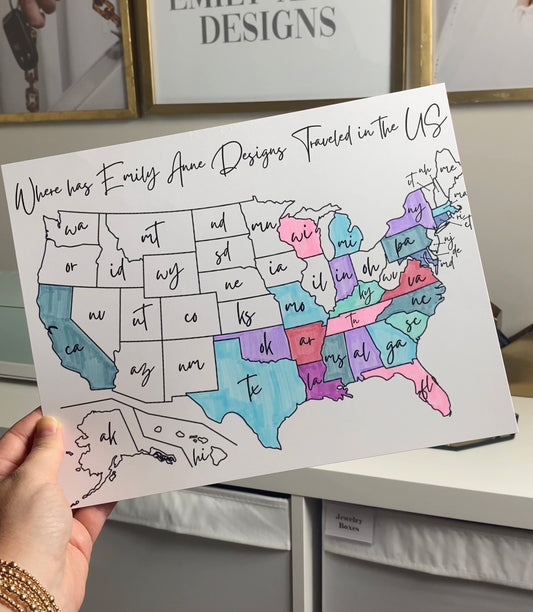 EMILY
DESIGNS
Where has Emily Anne Designs Traveled in the US
wa
mt
nd
mn
wi
mi
ny
vt
nh
me
ma
ct
or
id
wy
sd
ia
il
in
oh
pa
nj
de
md
nv
ut
co
ne
ks
mo
ky
wv
va
ca
az
nm
ok
ar
tn
nc
sc
tx
la
ms
al
ga
fl
ak
hi
Jewelry
Boxes